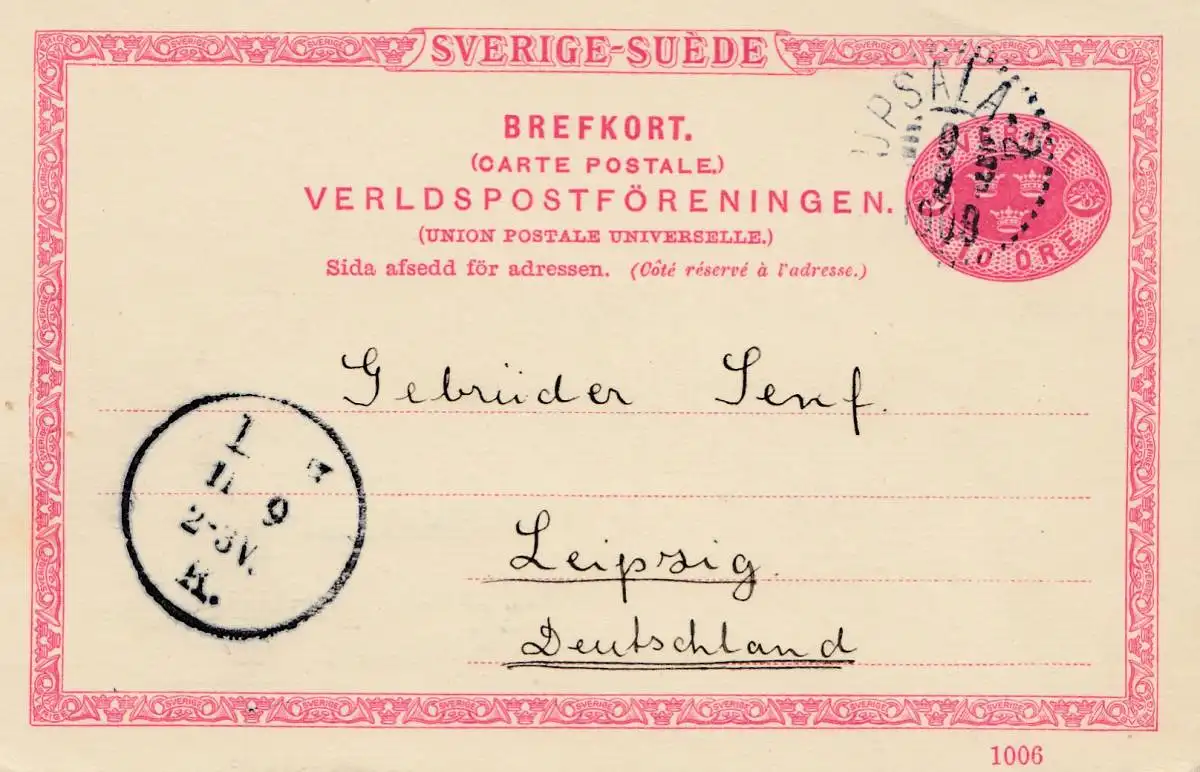 SVERIGE-SUÈDE
BREFKORT.
(CARTE POSTALE.)
VERLDSPOSTFÖRENINGEN.
(UNION POSTALE UNIVERSELLE.)
Sida afsedd för adressen. (Côté réservé à l'adresse.)
UPSALA
SVERIGE
10 ÖRE
Gebrüder Senf.
Leipzig
Deutschland
1
11 9
2-3V.
1006